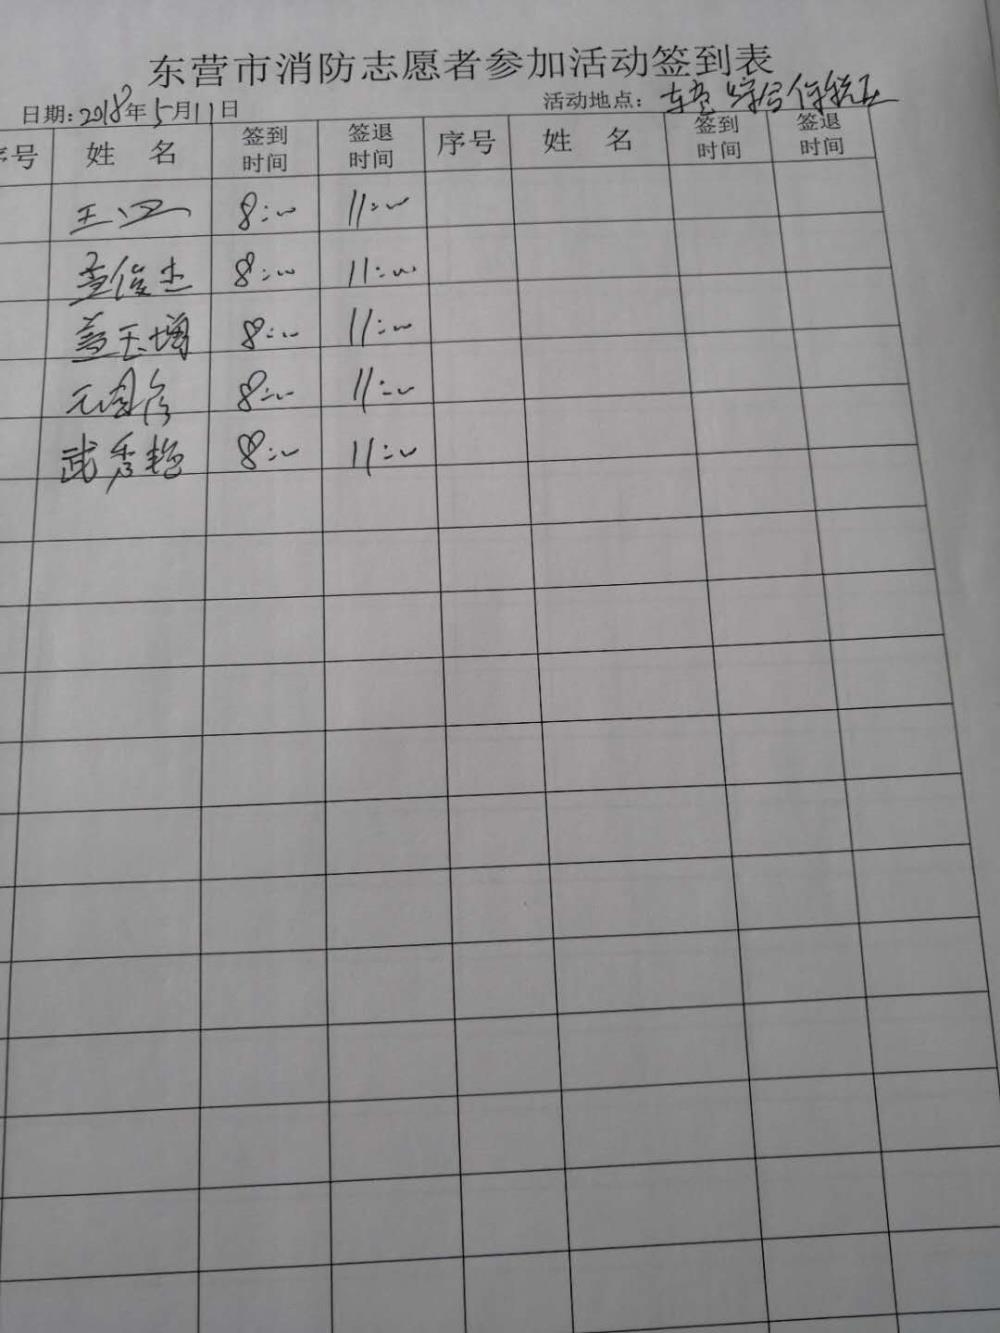 东营市消防志愿者参加活动签到表
日期:2018年5月11日 活动地点:东营综合保税区
序号 姓 名 签到时间 签退时间 序号 姓 名 签到时间 签退时间
王 8:00 11:00
盖俊杰 8:00 11:00
盖玉增 8:00 11:00
8:00 11:00
武秀艳 8:00 11:00